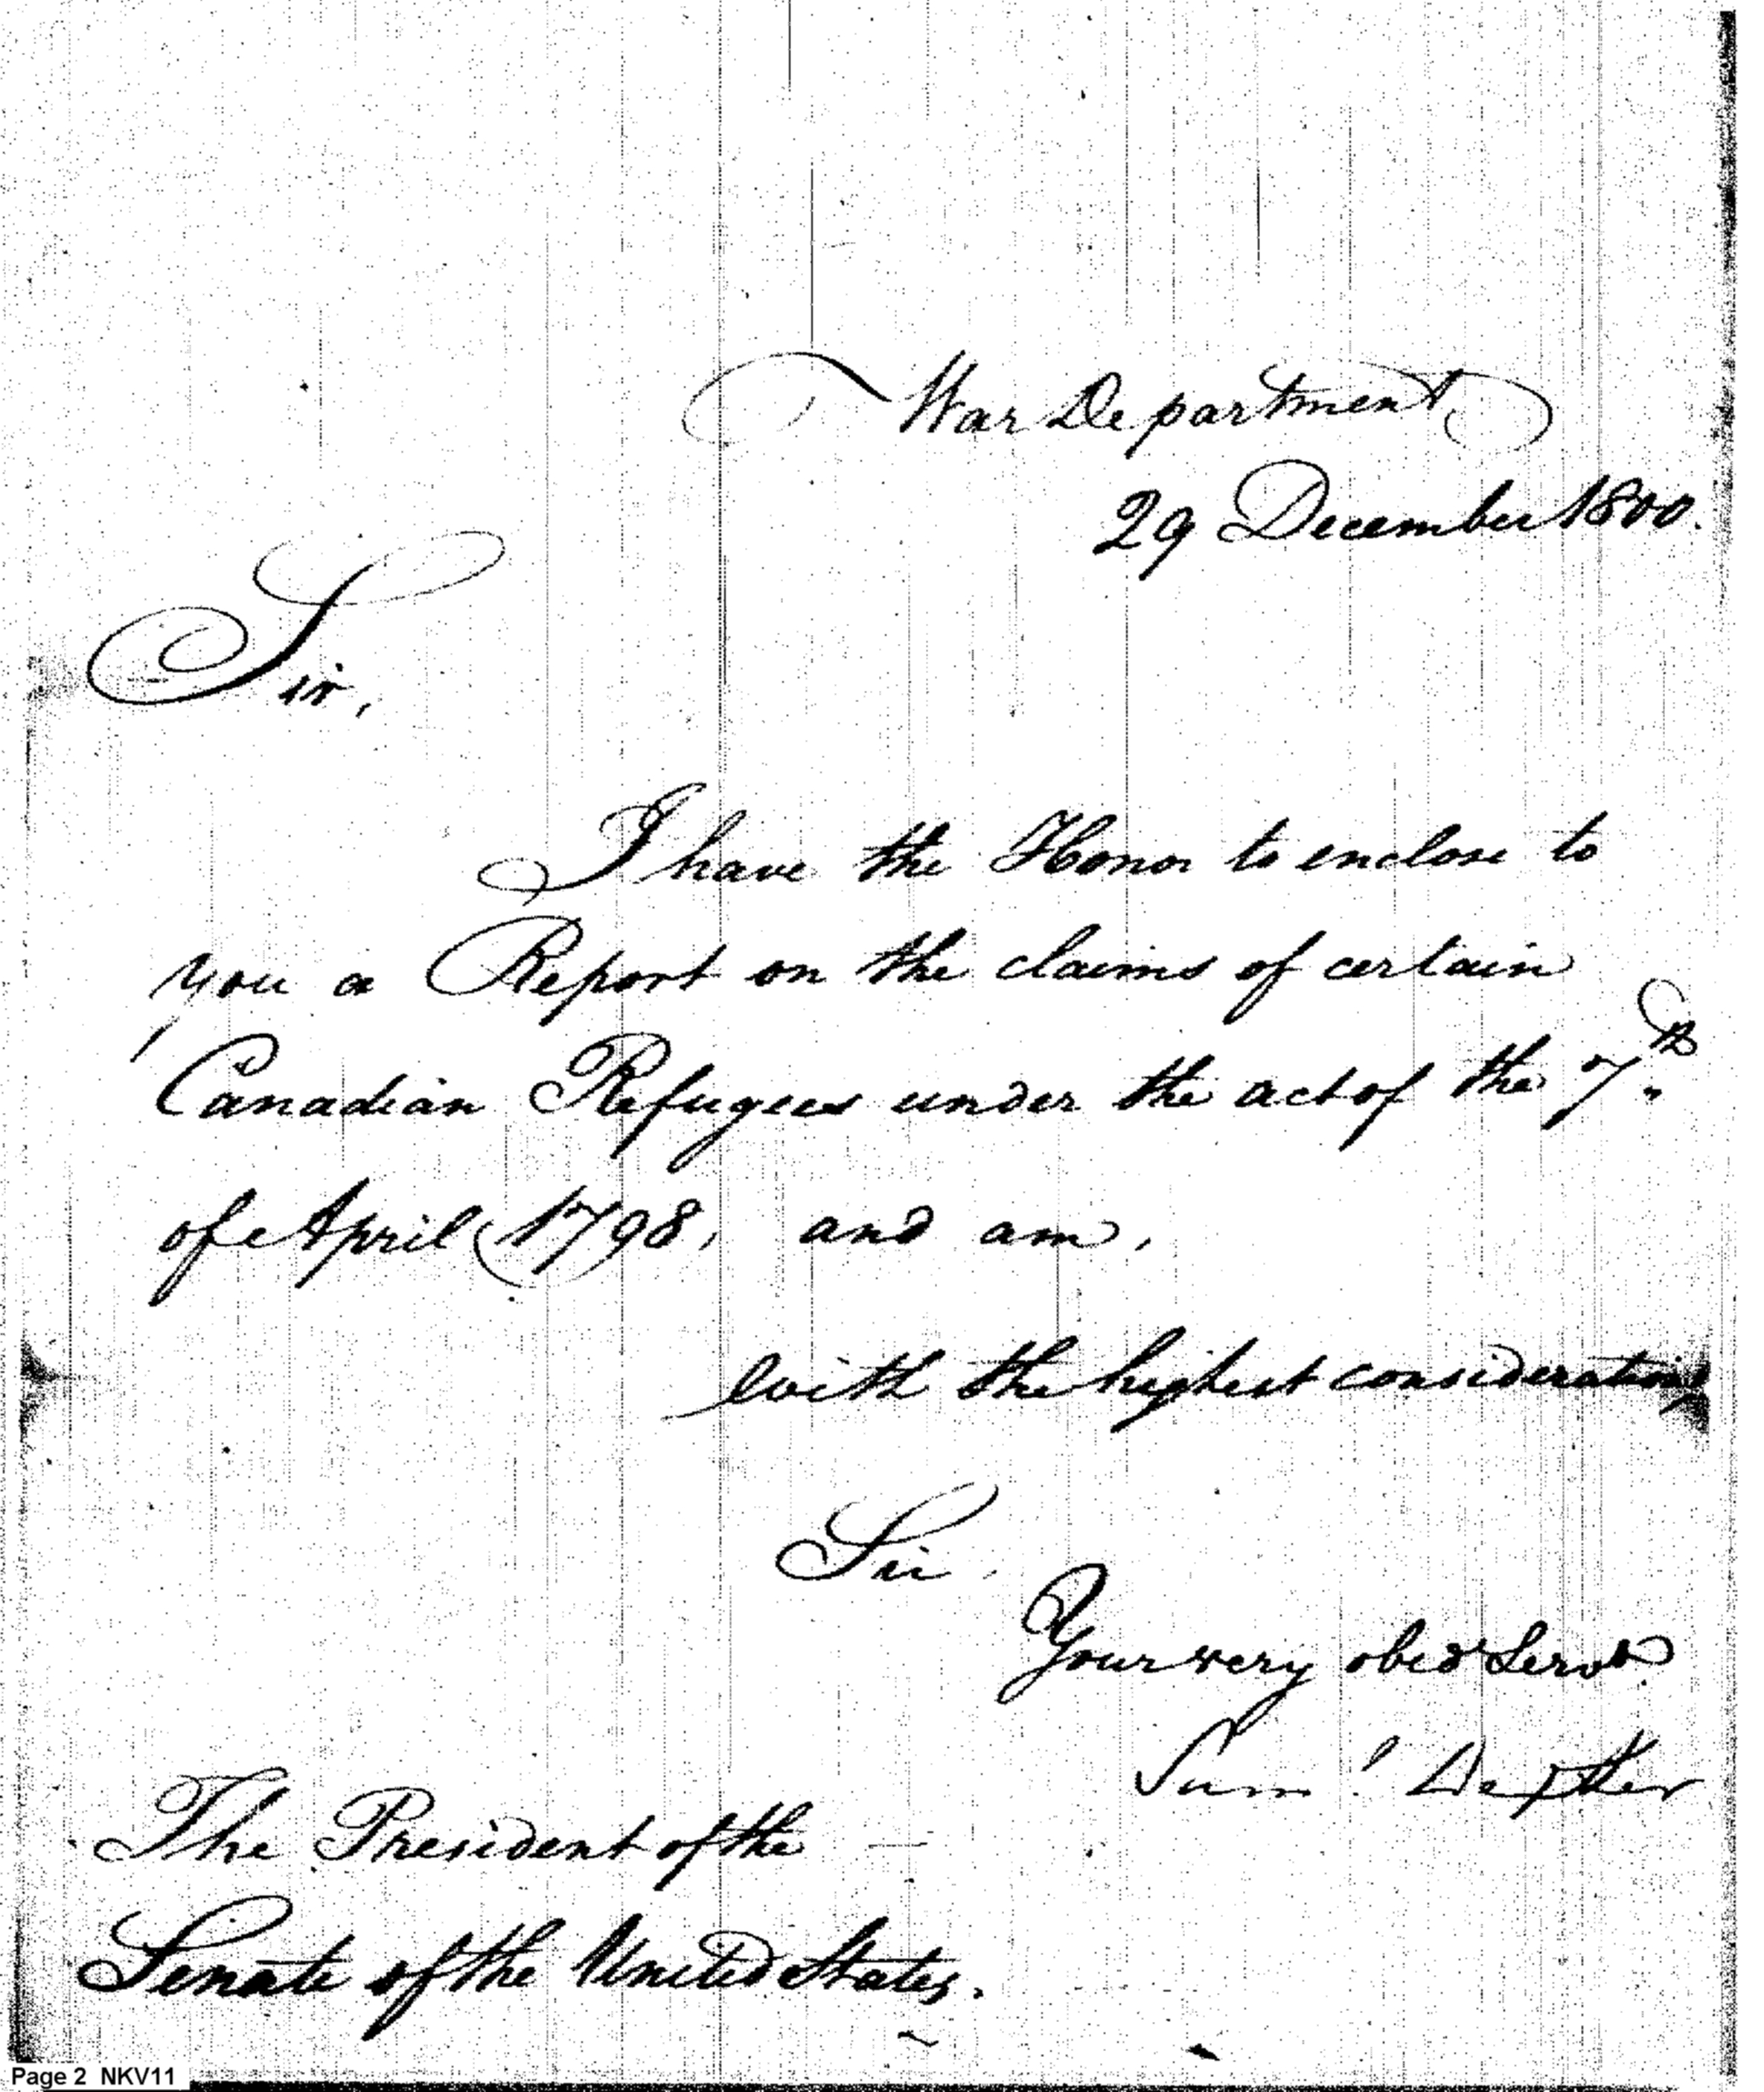 War Department,
29 December 1800.
Sir,
I have the Honor to enclose to
you a Report on the claims of certain
Canadian Refugees under the act of the 7th
of April 1798, and am,
with the highest consideration,
Sir,
Your very obed Servt
Saml Dexter
The President of the
Senate of the United States.
Page 2 NKV11